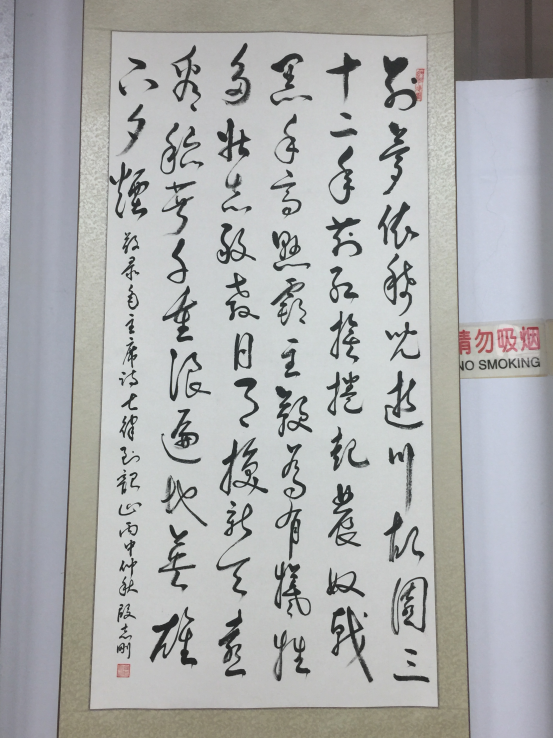 别夢依稀咒逝川故園三
十二年前红旗捲起農奴戟
黑手高懸霸主鞭為有犧牲
多壮志敢教日月换新天喜
看稻菽千重浪遍地英雄
下夕煙
敬录毛主席诗七律到韶山丙申仲秋段志刚
请勿吸烟
NO SMOKING